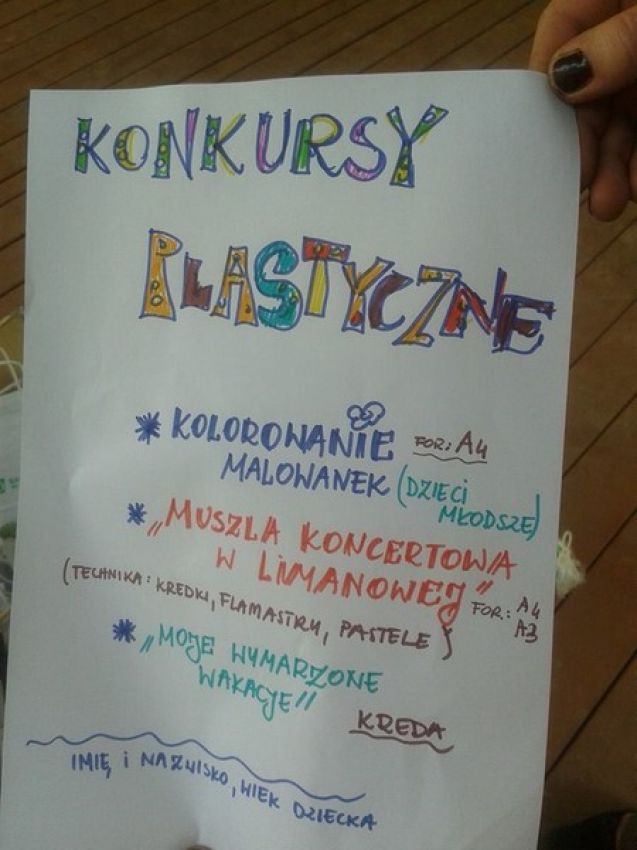 KONKURSY
PLASTYCZNE
* KOLOROWANIE FOR: A4
MALOWANEK (DZIECI
MŁODSZE)
* „MUSZLA KONCERTOWA
W LIMANOWEJ"
(TECHNIKA: KREDKI, FLAMASTRY, PASTELE) FOR.: A4
A3
* „MOJE WYMARZONE
WAKACJE"
KREDA
IMIĘ i NAZWISKO, WIEK DZIECKA